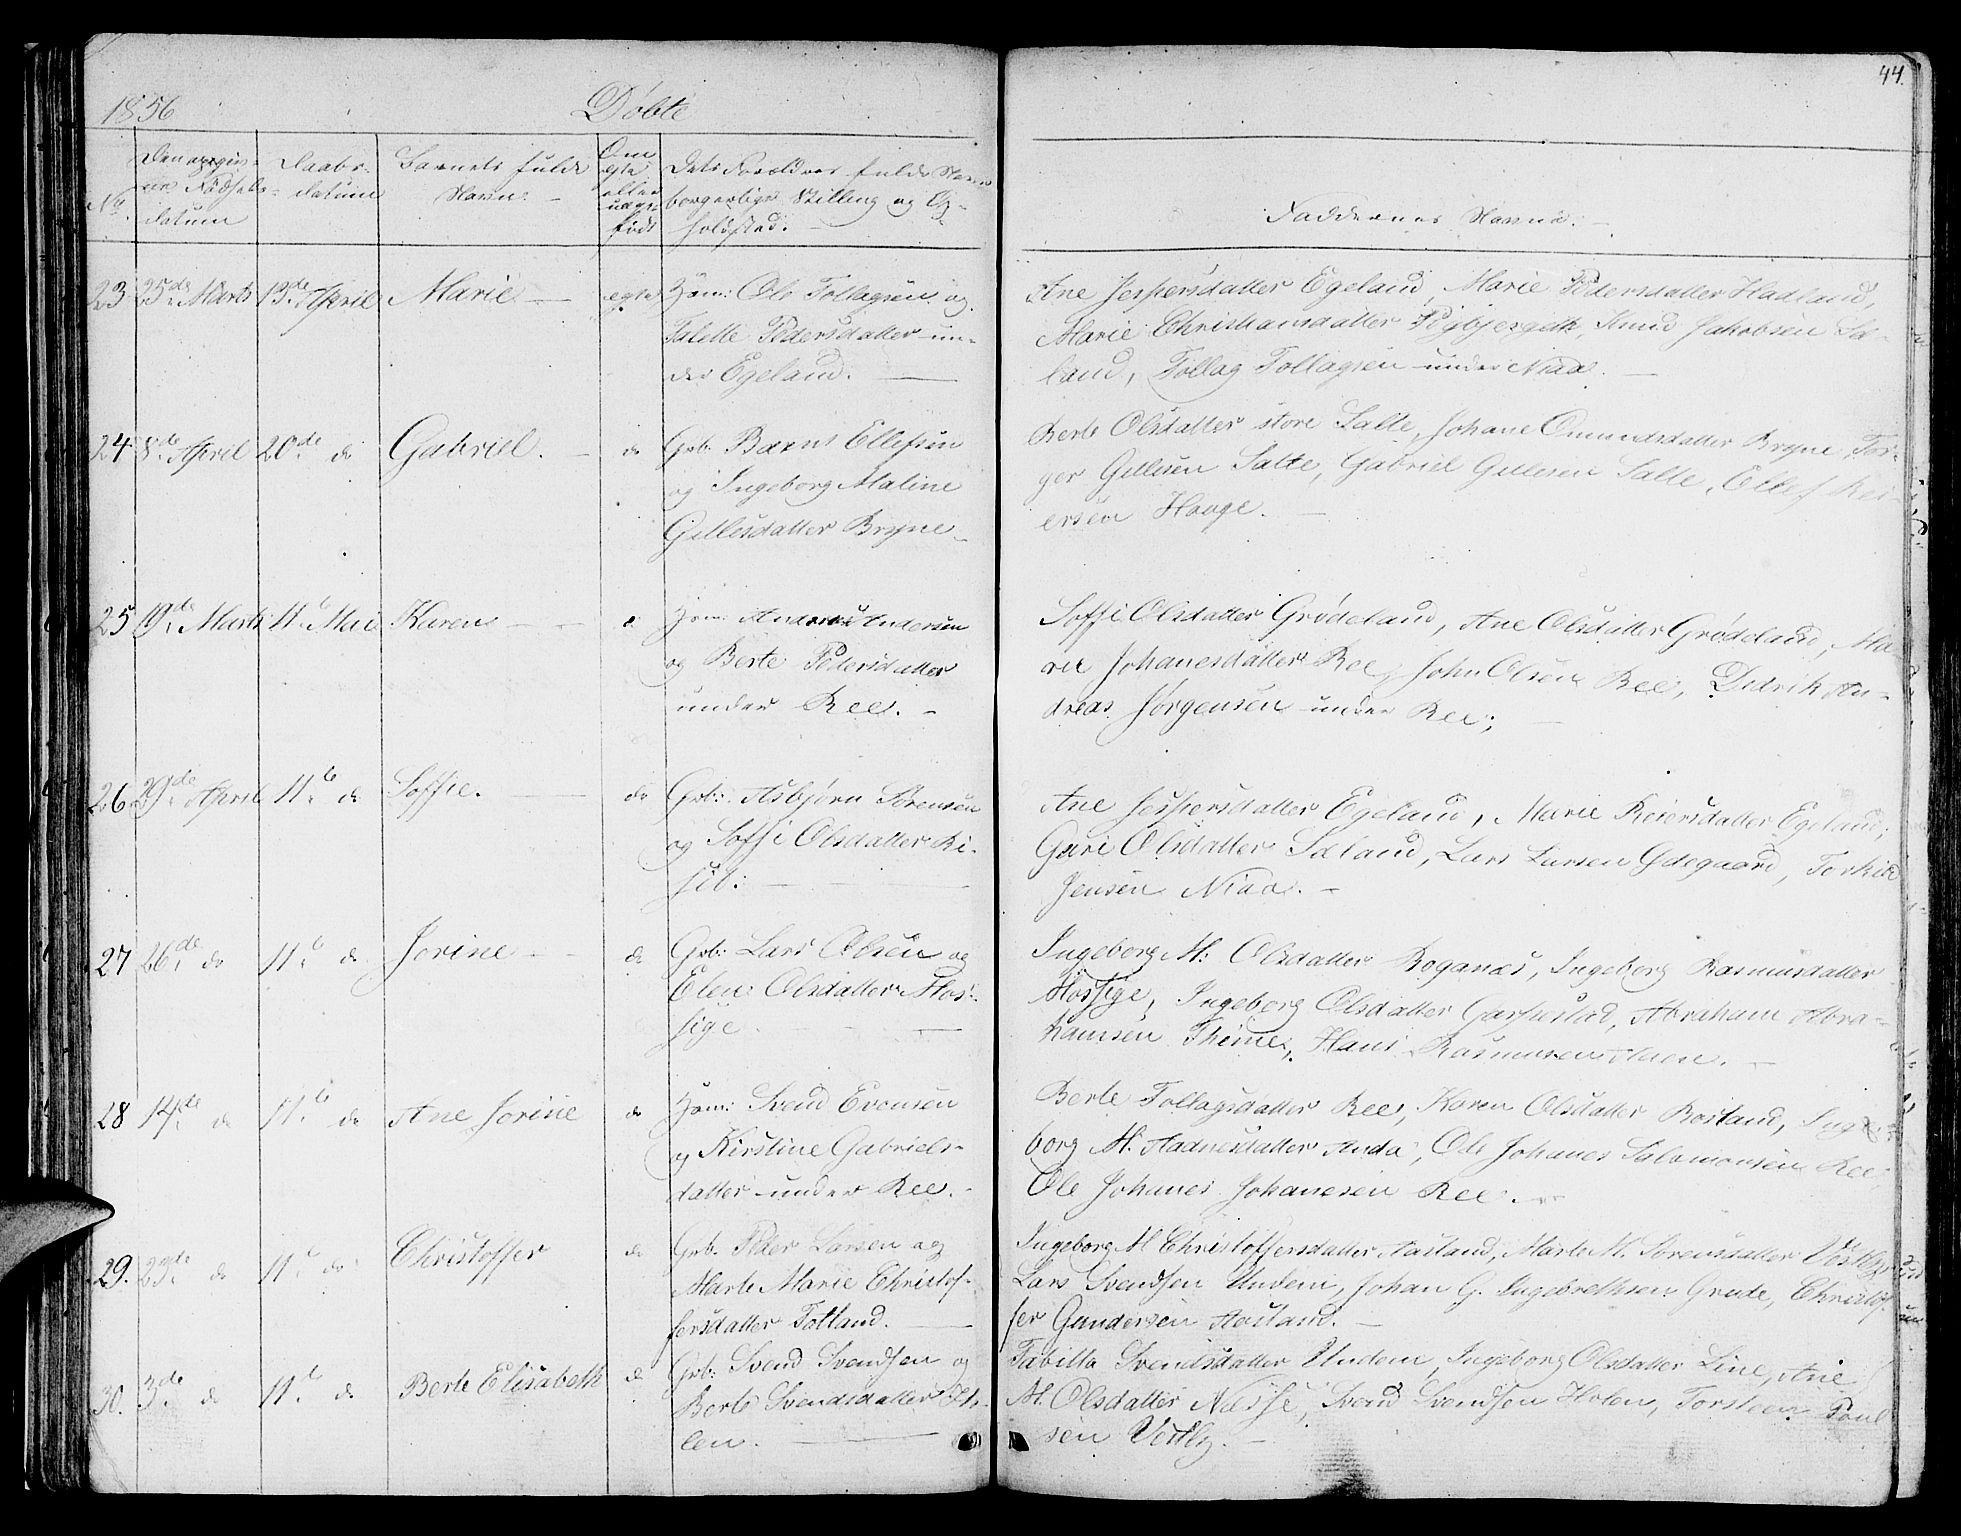 44.
1856 Døbte
No.
Den opgivne Fødsels-datum
Daabs-datum
Barnets fulde Navn.
Om egte eller uægte født
Dets Forældres fulde Navne borgerlige Stilling og Opholdsted.
Faddernes Navne.
23 25de Marts 13de April Marie egte Huum: Ole Tollagsen og
Talette Pedersdatter un-
der Egeland.
Ane Jespersdatter Egeland, Marie Pedersdatter Hadland,
Marie Christiansdatter Knud Jakobsen Sæ-
land, Tollag Tollagsen under Niaa.
24 8de April 20de do Gabriel. do Grb. Barns Ellefsen
og Ingeborg Maline
Gellesdatter Bryne
Berte Olsdatter store Salte, Johane Omundsdatter Bryne, Tor-
ger Gellesen Salte, Gabriel Gellesen Salte, Ellef Rei-
ersen Houge.
25 19de Marts 11te Mai Karen Andersen
og Berte Pedersdatter
under Ree.
Soffi Olsdatter Grødeland, Ane Olsdatter Grødeland, Ma-
rie Johanesdatter Ree, John Olsen Ree, Didrik An-
dreas Jørgensen under Ree;
26 29de April 11te do Soffie. do Grb: Asbjørn Sørensen
og Soffi Olsdatter Ri-
sib:
Ane Jespersdatter Egeland, Marie Reiersdatter Egeland,
Guri Olsdatter Sæland, Lars Larsen Ødegaard, Torkild
Jensen Niaa.
27 26de do 11te do Jorine do Grb: Lars Olsen og
Elen Olsdatter Mos-
sige
Ingeborg M: Olsdatter Roganæs, Ingeborg Rasmusdatter
Mossige, Ingeborg Olsdatter Garpestad, Abraham Abra-
hamsen Thime, Hans Rasmusen Moen.
28 14de do 11te do Ane Jorine do Svend Evensen
og Kirstine Gabriels-
datter under Ree.
Berte Tollagsdatter Ree, Karen Olsdatter Rosland, Inge-
borg M. Aadnesdatter Anda, Ole Johanes Salomonsen Ree,
Ole Johanes Johanesen Ree.
29. 23de do 11te do Christoffer do Grb. Peder Larsen og
Marte Marie Christof-
fersdatter Totland.
Ingeborg M Christoffersdatter Aasland, Marte M. Sørensdatter Vestly,
Lars Svendsen Undem, Johan G. Ingebrethsen Grude, Christof-
fer Gundersen Aasland.
30. 3de do 11te do Berte Elisabeth do Grb: Svend Svendsen og
Berte Svendsdatter Ho-
len.
Tabitta Svendsdatter Undem, Ingeborg Olsdatter Line, Ane
M. Olsdatter Næsse, Svend Svendsen Holen, Torsteen Poul
sen Vestly.